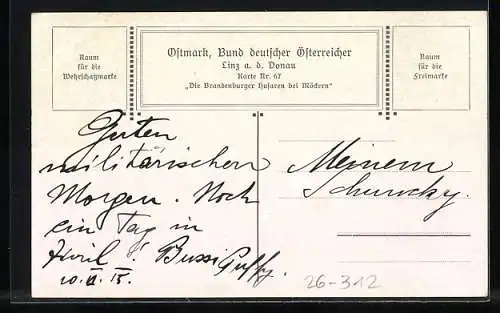 Raum
für die
Wehrschatzmarke
Ostmark, Bund deutscher Österreicher
Linz a. d. Donau
Karte Nr. 67
„Die Brandenburger Husaren bei Möckern"
Raum
für die
Freimarke
Guten
militärischen
Morgen. Noch
ein Tag in
April! Bussi Puffy.
Meinem
26-312